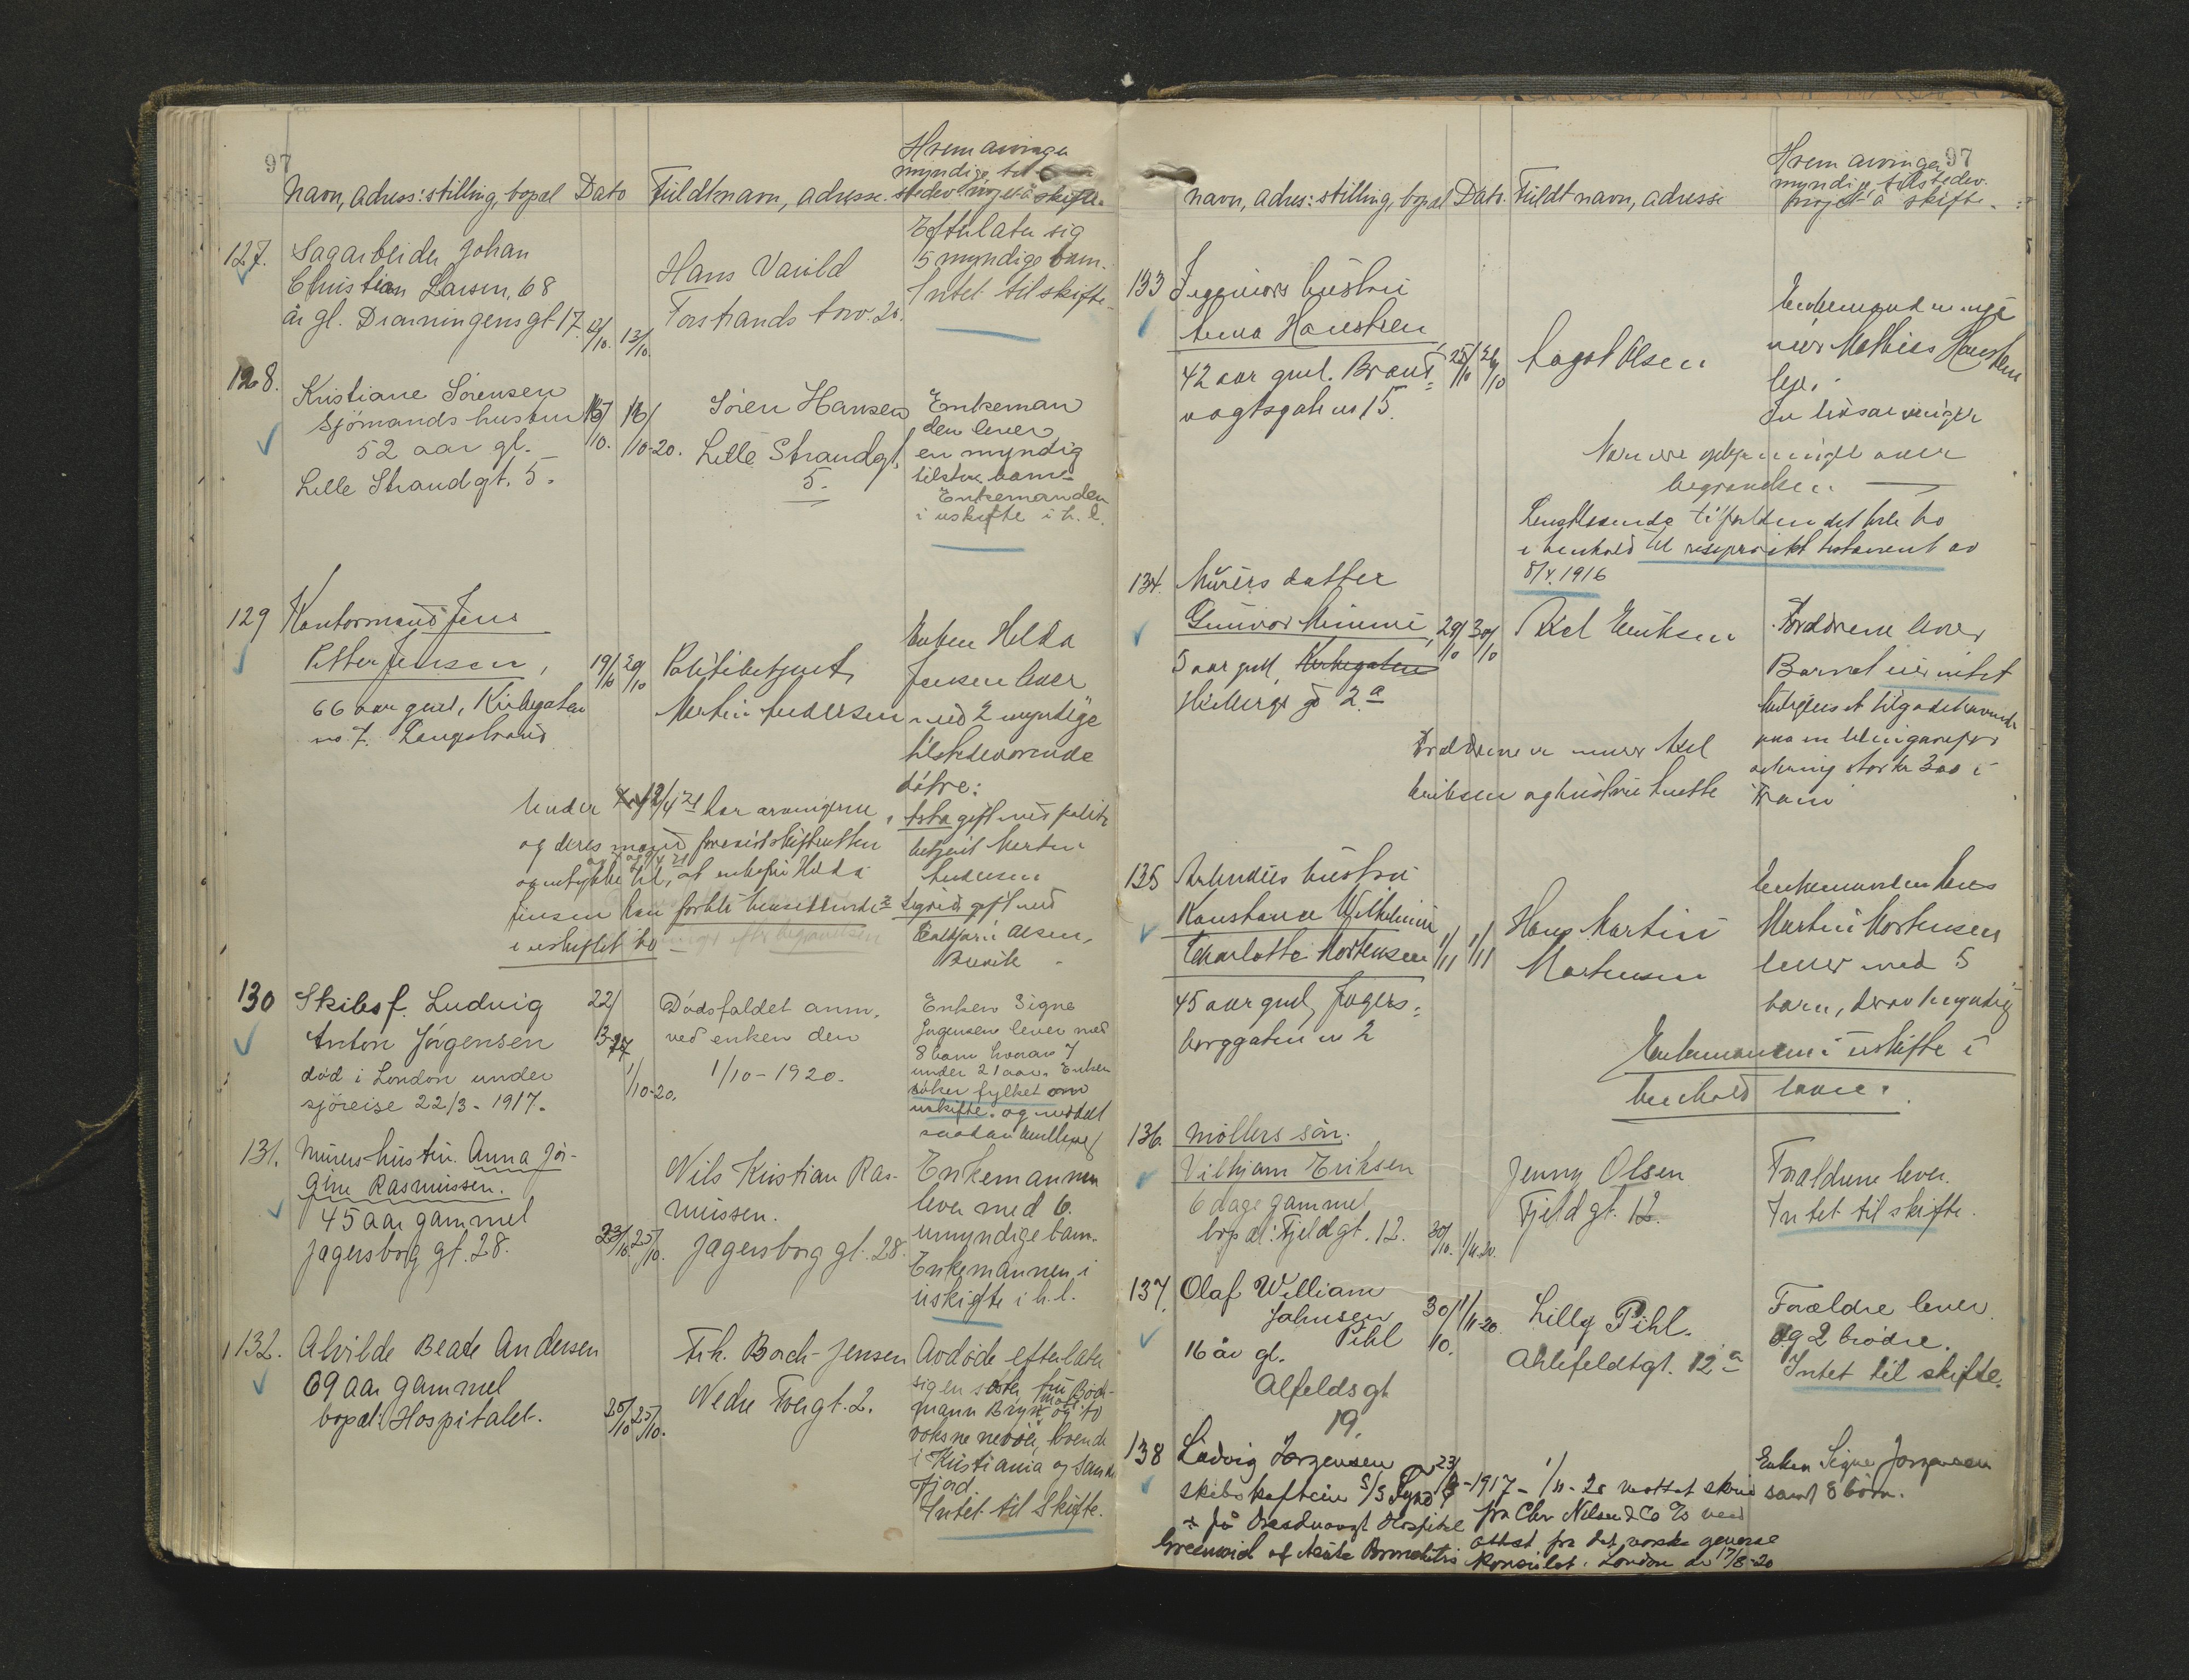 97
Navn, adress: stilling, bopæl Dato Fuldt navn, adresse.
Hvem arvinger
myndige, til
stede. noget å skifte.
127. Sagarbeider Johan
Christian Larsen, 68
år gl. Dronningensgt 17.
12/10. 13/10.
Hans Varild
Torstrands torv 26.
Efterlater sig
5 myndige barn.
Intet til skifte.
128.
Kristiane Sörensen
Sjömands hustru
52 aar gl.
Lille Strandgt. 5.
16/10. 18/10-20.
Sören Hansen
Lille Strandgt.
5.
Enkeman
den lever
en myndig
barn
Enkemanden
i uskifte i h. l.
129 Kontormand Jens
Petter Jensen,
66 aar gml, Kirkegaten
no 7. Langestrand
19/10 20/10
Politibetjent
Martin Andersen
Enken Hilda
Jensen lever
med 2 myndige
tilstedeværende
døtre:
Asta gift med politi
betjent Martin
Andersen
Sigrid gift med
Olsen,
Under 12/4 21 har arvingerne
og deres mænd for skifteretten
samtykket til, at enkefru Hilda
Jensen kan forbli hensittende
i uskiftet bo
130 Skibsf. Ludvig
Anton Jörgensen
död i London under
sjöreise 22/3 - 1917.
22/
3-17
1/10-20.
Dödsfaldet anm.
ved enken den
1/10 - 1920.
Enken Signe
Jorgensen lever med
8 barn hvorav 7
under 21 aar. Enken
söker fylket om
uskifte. og meddelt
saadan
131. Murers hustru. Anna Jör-
gine Rasmussen.
45 aar gammel
Jagersborg gt. 28.
23/10 25/10.
Nils Kristian Ras-
mussen.
Jagersborg gt. 28.
Enkemannen
lever med 6.
umyndige barn.
Enkemannen i
uskifte i h. l.
132. Alvilde Beate Andersen
69 aar gammel
bopæl: Hospitalet.
25/10 25/10.
Frk. Borch-Jensen
Nedre Torvgt. 2.
Avdöde efterlater
sig en söster fru Bod-
mann Bryn og to
voksne nevöer, boende
i Kristiania og Sande
fjord.
Intet til Skifte.
97
Navn, adres: stilling, bopæl Dato. Fuldt navn, adresse
Hvem arvinger
myndige, tilstedev.
noget å skifte.
133 Ingeniörs hustru
Anna Haustsen,
42 aar gml. Brand=
vagtsgaten 15.
25/10 26/10
Aagot Olsen
Enkemand inge
niör Mathias
lever.
Ingen livsarvinger
Nærmere oplysninger over
begravelsen.
Længstlevende tilfalder det hele bo
i henhold til resiprokt testament av
8/4. 1916
134. Murers datter
Gunvor Minni,
5 aar gml, Kirkegaten
Hedbergs gd 2 a
29/10 30/10
Axel Eriksen
Forældrene lever
Barnet eier intet
Forældrene er murer Axel
Eriksen og hustru Anette
135 Arbeiders hustru
Konstance Wilhelmine
Charlotte Mortensen
45 aar gml, Jagers=
borggaten no 2
1/11 1/11
Hans Martin
Mortensen
Enkemanden Hans
Martin Mortensen
lever med 5
barn, derav 1 myndig
Enkemannen i uskifte i
henhold loven.
136. Möllers sön.
Vilhjam Eriksen
6 dage gammel
bopæl: Fjeldgt. 12.
30/10. 1/11.20.
Jenny Olsen
Fjeldgt. 12.
Forældrene lever.
Intet til skifte.
137. Olaf William
Johnsen
Pihl
16 år gl.
Alfeldsgt
19.
30/10. 1/11-20.
Lilly Pihl.
Ahlefeldtgt. 12 a
Forældre lever
og 2 brödre.
Intet til skifte.
138 Ludvig Jørgensen
skibskaptein S/S
23/3-1917 - 1/11-20 mottat skriv
Enken Signe Jørgensen
samt 8 börn.
+ på Dreadnought Hospital
fra Chr Nilsen & Co A/S med
Greenwich af Akute Bronchitis
attest fra det norske general
Konsulat i London av 17/8-20